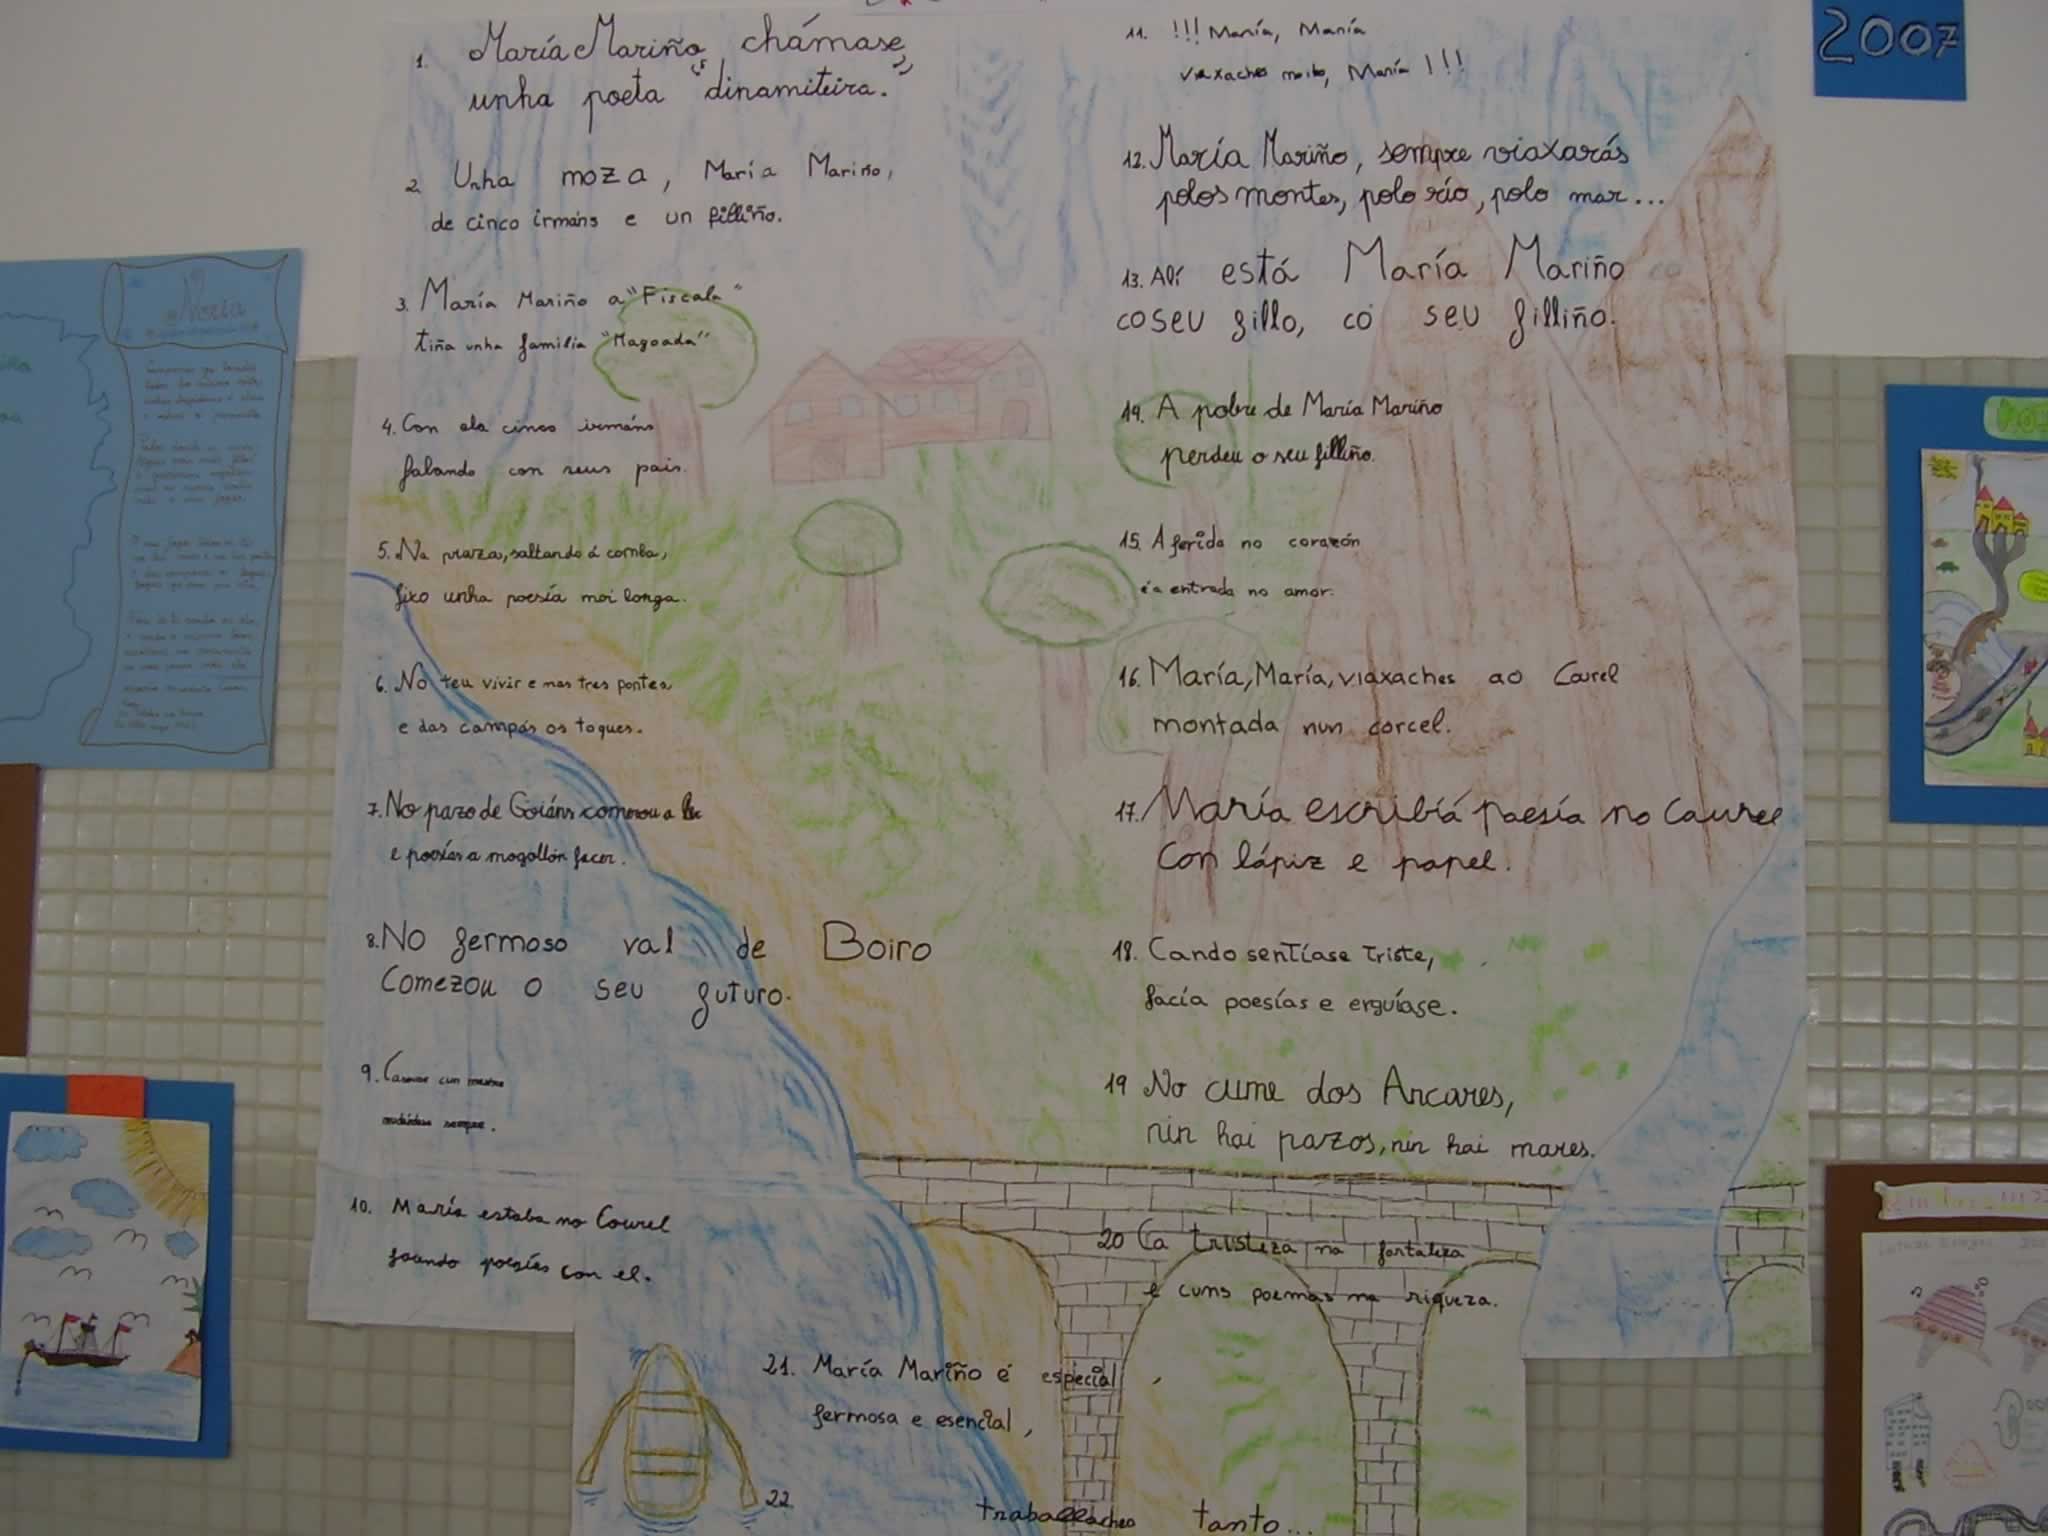 1. María Mariño, chámase
unha poeta "dinamiteira."
2. Unha moza, María Mariño,
de cinco irmáns e un filliño.
3. María Mariño a "Fiscala"
tiña unha familia "Magoada"
4. Con ela cinco irmáns
falando con seus pais.
5. Na praza, saltando á comba,
fixo unha poesía moi longa.
6. No teu vivir e nas tres pontes
e das campás os toques.
7. No pazo de Goiáns comezou a ler
e poesías a mogollón facer.
8. No fermoso val de Boiro
Comezou o seu futuro.
9. Casouse cun mestre
mudándose sempre.
10. María estaba no Courel
facendo poesías con el.
11. !!! María, María
viaxaches moito, María !!!
12. María Mariño, sempre viaxarás
polos montes, polo río, polo mar...
13. Alí está María Mariño
co seu fillo, co seu filliño.
14. A pobre de María Mariño
perdeu o seu filliño.
15. A ferida no corazón
é a entrada no amor.
16. María, María, viaxaches ao Courel
montada nun corcel.
17. María escribiá poesía no Caurel
con lápiz e papel.
18. Cando sentíase triste,
facía poesías e erguíase.
19 No cume dos Ancares,
nin hai pazos, nin hai mares.
20 Ca tristeza na fortaleza
e cuns poemas na riqueza.
21. María Mariño é especial,
fermosa e esencial,
22. traballaches tanto...
2007
Noria